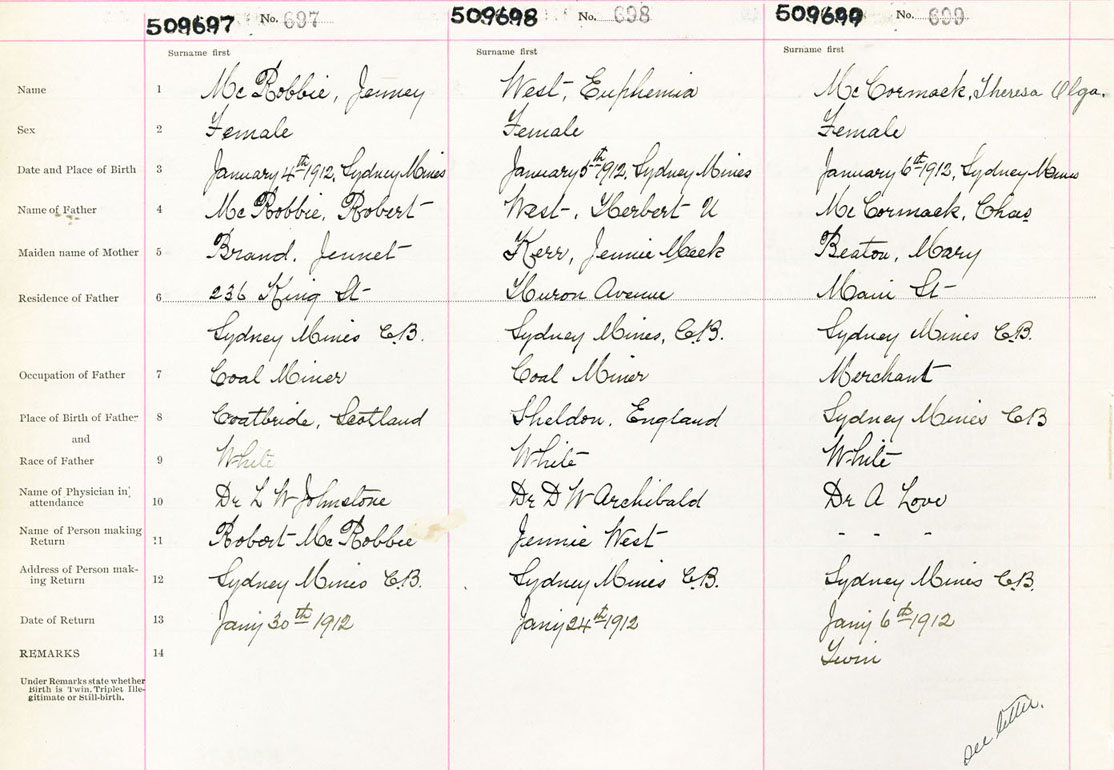 509697 No. 697 509698 No. 698 509699 No. 699
Surname first Surname first Surname first
Name 1 McRobbie, Jenney West, Euphemia McCormack, Theresa Olga.
Sex 2 Female Female Female
Date and Place of Birth 3 January 4th 1912, Sydney Mines January 5th 1912, Sydney Mines January 6th 1912, Sydney Mines
Name of Father 4 McRobbie, Robert West, Herbert U McCormack, Chas
Maiden name of Mother 5 Brand, Jennet Kerr, Jennie Meek Beaton, Mary
Residence of Father 6 236 King St Huron Avenue Main St
Sydney Mines C.B. Sydney Mines, C.B. Sydney Mines C.B.
Occupation of Father 7 Coal Miner Coal Miner Merchant
Place of Birth of Father 8 Coatbride, Scotland Sheldon, England Sydney Mines CB
and
Race of Father 9 White White White
Name of Physician in attendance 10 Dr L W Johnstone Dr D W Archibald Dr A Love
Name of Person making Return 11 Robert McRobbie Jennie West - - -
Address of Person making Return 12 Sydney Mines C.B. Sydney Mines C.B. Sydney Mines C.B.
Date of Return 13 Jany 30th 1912 Jany 24th 1912 Jany 6th 1912
REMARKS 14 Twin
Under Remarks state whether
Birth is Twin, Triplet Ille-
gitimate or Still-birth.
see letter.